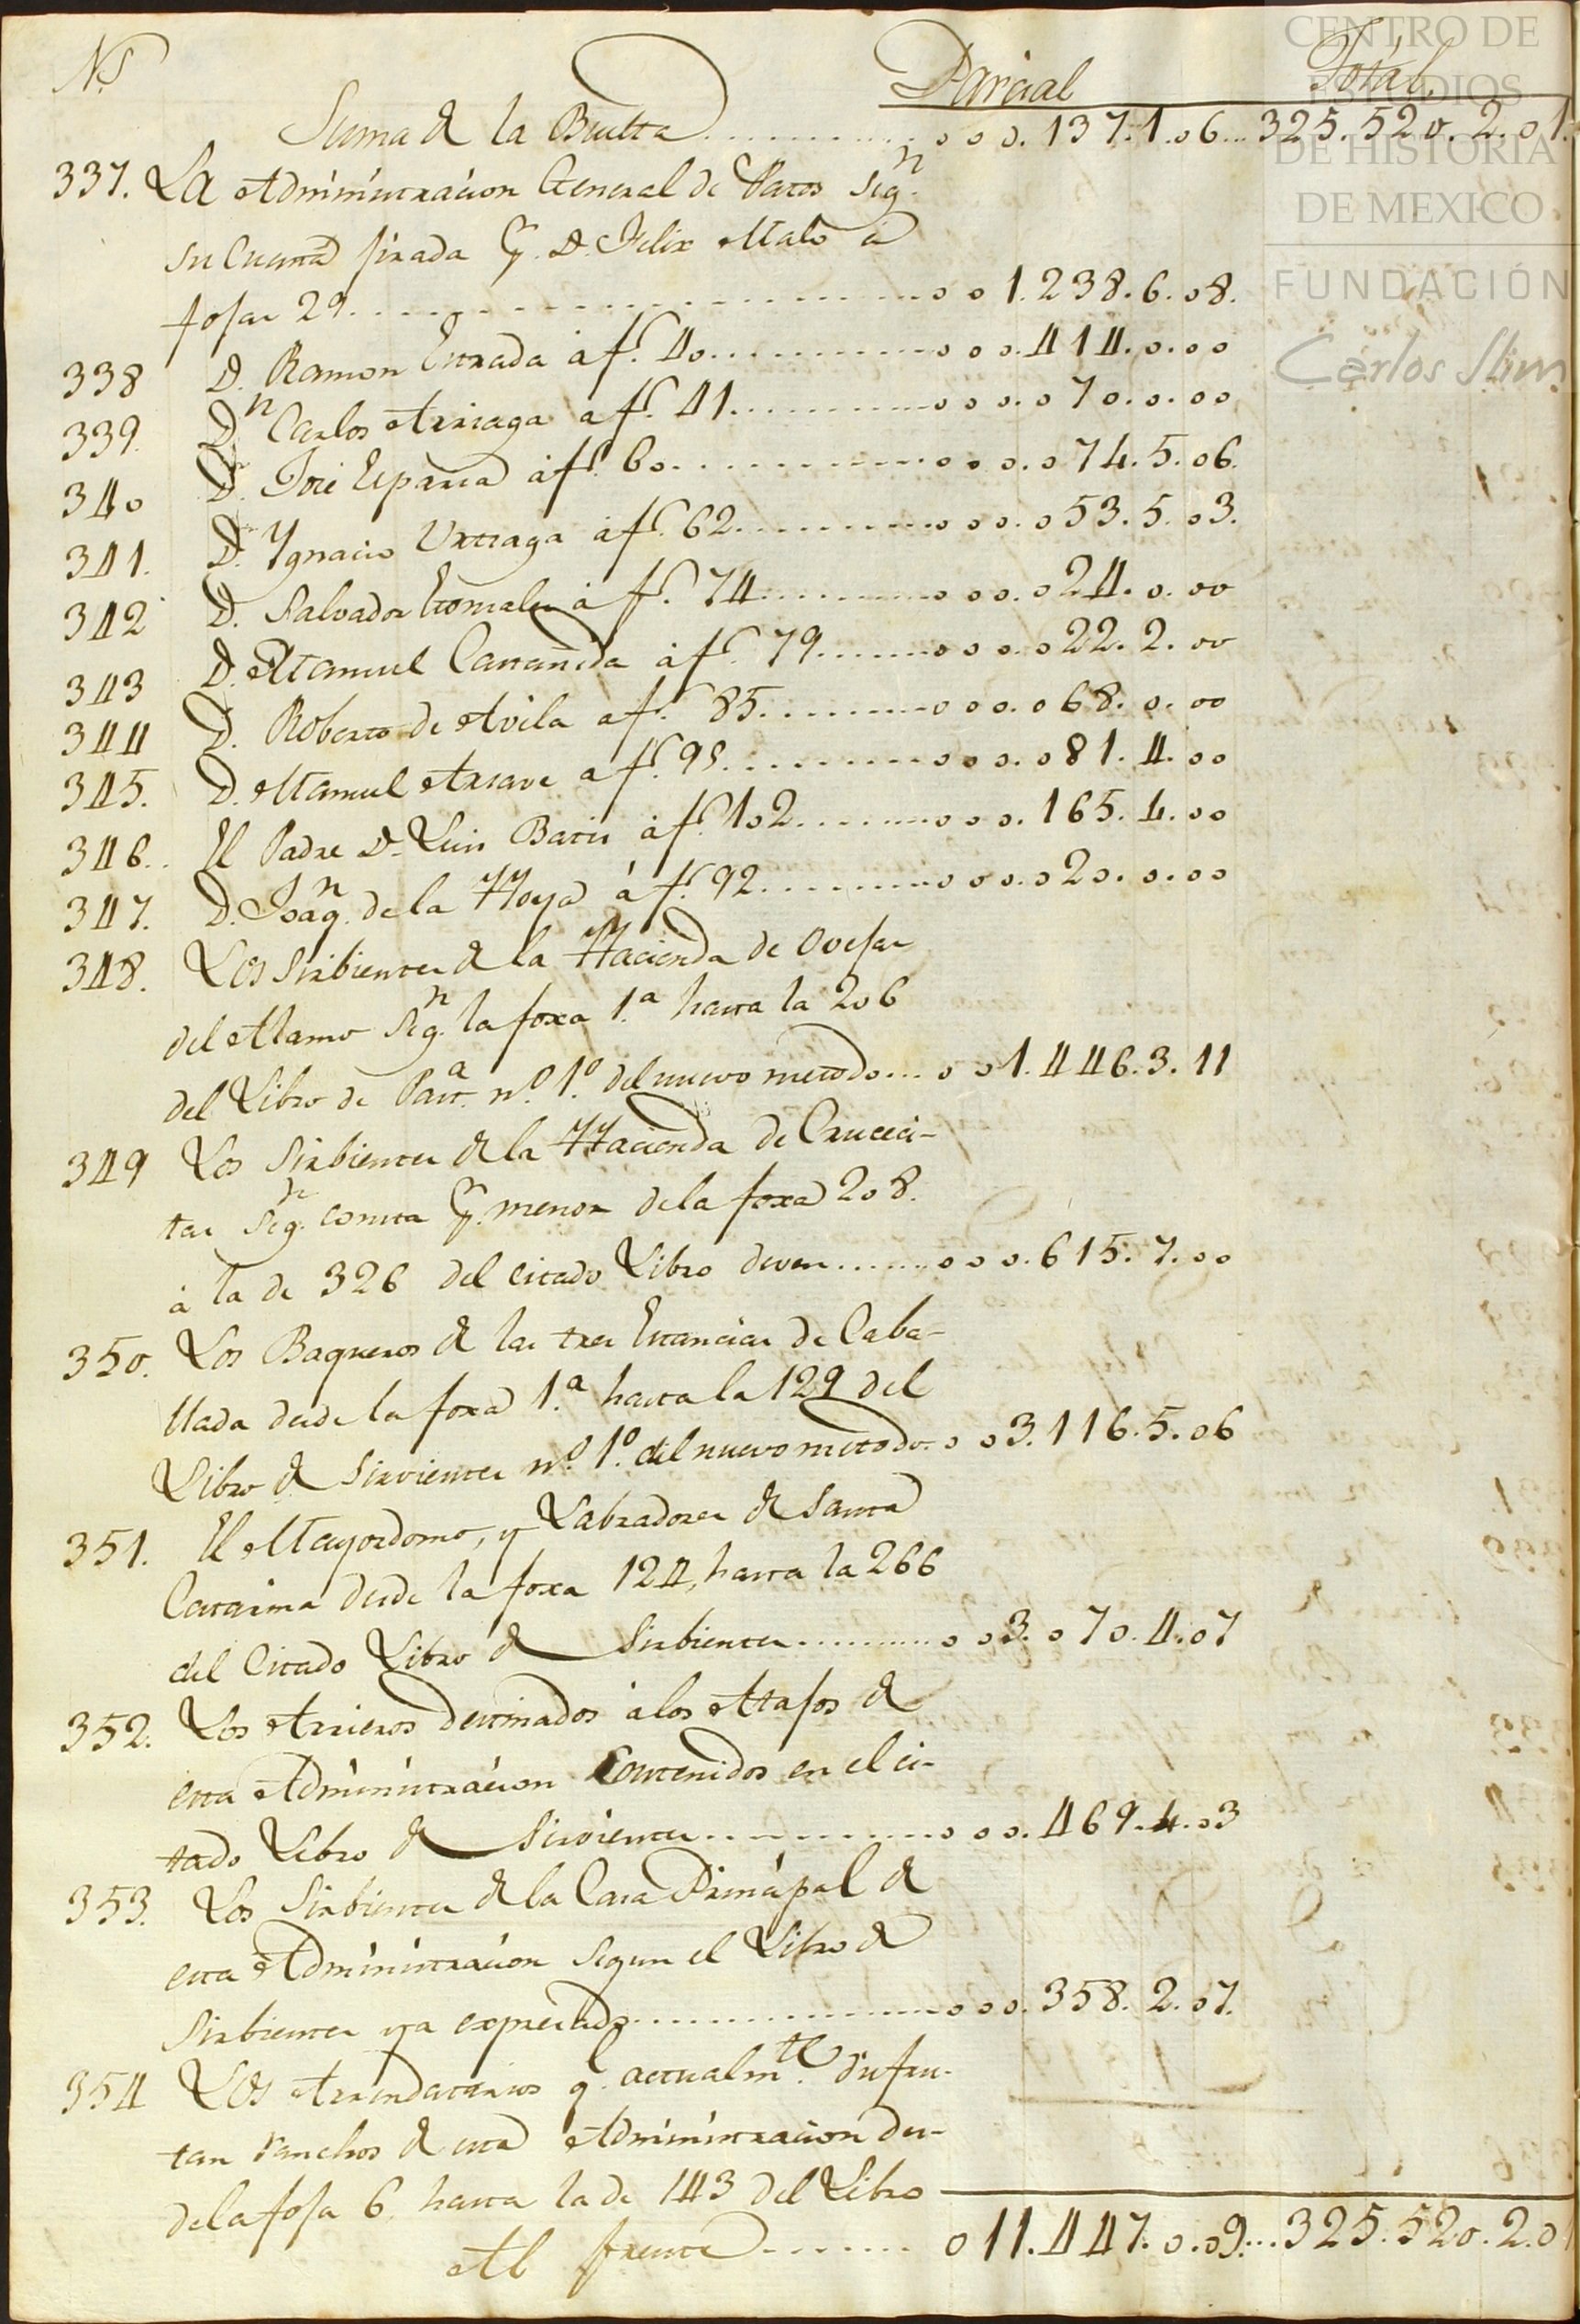 Ns Parcial Total
Suma de la Buelta ............ 000.137.1.06... 325.520.2.01.
337. La Administracion General de Patos Segn.
su Cuenta firada pr. Dn. Felix Malo á
fojas 29 ............ 001.238.6.08.
338 D. Ramon Estrada á fs. 40 ............ 000.414.0.00
339. Dn. Carlos Arriaga á fs. 41 ............ 000.070.0.00
340 D. José Esparsa á fs. 60 ............ 000.074.5.06.
341. D. Ygnacio Urtiaga á fs. 62 ............ 000.053.5.03.
342 D. Salvador Gonzales á fs. 74 ............ 000.024.0.00
343 D. Manuel Castañeda á fs. 79 ............ 000.022.2.00
344 D. Roberto de Avila á fs. 85 ............ 000.068.0.00
345. D. Manuel á fs. 95 ............ 000.081.4.00
346. El Padre Dn. Luis Batis á fs. 102 ............ 000.165.4.00
347. D. Joaqn. de la Hoya á fs. 92 ............ 000.020.0.00
348. Los Sirbientes de la Hacienda de Ovejas
del Alamo Segn. la foxa 1.a hasta la 206
del Libro de Parta. no. 1o. del nuevo metodo ... 001.446.3.11
349 Los Sirbientes de la Hacienda de Cruceci-
tas Segn. consta pr. menor de la foxa 208.
á la de 326 del citado Libro deven ........ 000.615.7.00
350. Los Baqueros de las tres Estancias de Caba-
llada desde la foxa 1.a hasta la 129 del
Libro de Sirvientes no. 1o. del nuevo metodo. 003.116.5.06
351. El Mayordomo, y Labradores de Santa
Catarina desde la foxa 124, hasta la 266
del Citado Libro de Sirbientes ............ 003.070.4.07
352. Los Arrieros destinados á los Atajos de
esta Administracion Contenidos en el ci-
tado Libro de Sirvientes ............ 000.469.4.03
353. Los Sirbientes de la Casa Principal de
esta Administracion Segun el Libro de
Sirbientes ya expresado ............ 000.358.2.07.
354 Los Arrendatarios q. actualmte. disfru-
tan ranchos de esta Administracion des-
de la foja 6, hasta la de 143 del Libro
Al frente ........ 011.447.0.09... 325.520.2.0
CENTRO DE
ESTUDIOS
DE HISTORIA
DE MEXICO
FUNDACIÓN
Carlos Slim